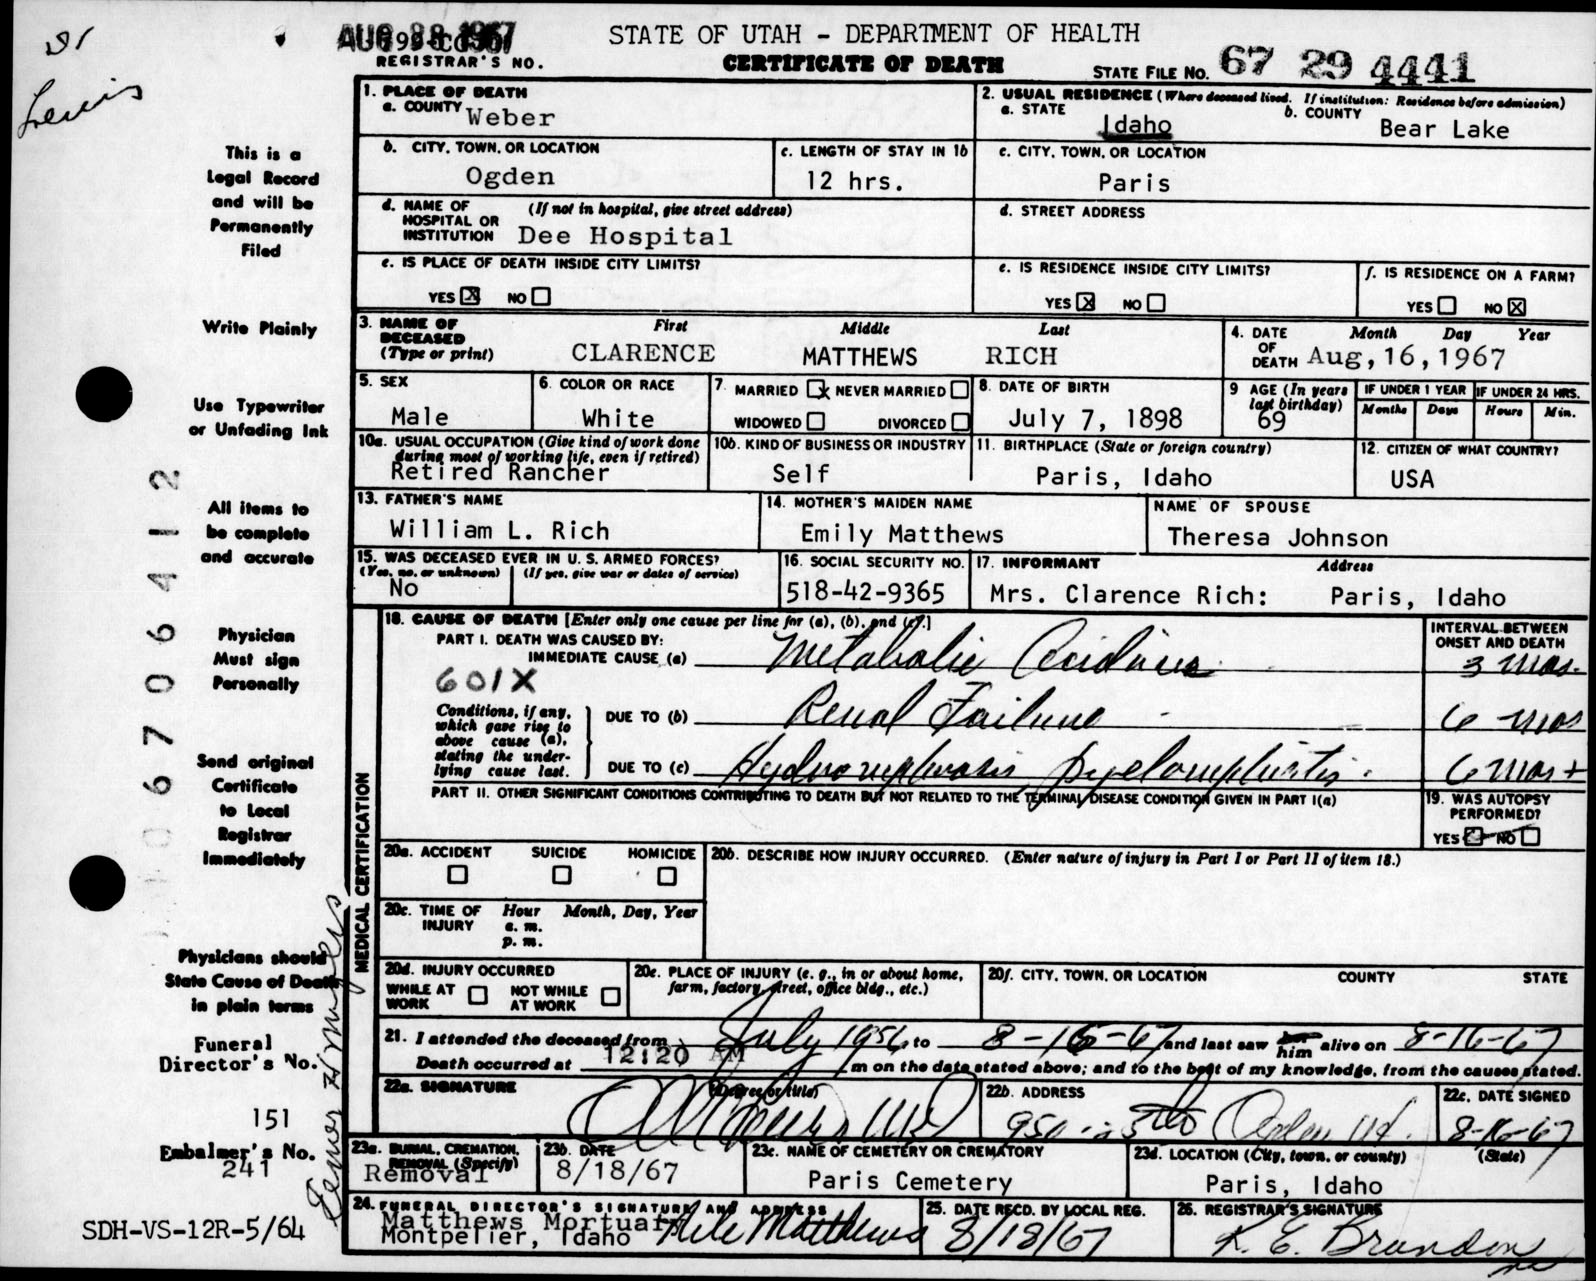 Lewis
AUG 28 1967
REGISTRAR'S NO.
STATE OF UTAH - DEPARTMENT OF HEALTH
CERTIFICATE OF DEATH
STATE FILE NO. 67 29 4441
1. PLACE OF DEATH
a. COUNTY Weber
2. USUAL RESIDENCE (Where deceased lived. If institution: Residence before admission)
a. STATE Idaho b. COUNTY Bear Lake
b. CITY, TOWN, OR LOCATION Ogden
c. LENGTH OF STAY IN 1b 12 hrs.
c. CITY, TOWN, OR LOCATION Paris
d. NAME OF HOSPITAL OR INSTITUTION (If not in hospital, give street address) Dee Hospital
d. STREET ADDRESS
e. IS PLACE OF DEATH INSIDE CITY LIMITS?
YES X NO
e. IS RESIDENCE INSIDE CITY LIMITS?
YES X NO
f. IS RESIDENCE ON A FARM?
YES NO X
3. NAME OF DECEASED (Type or print)
First Middle Last
CLARENCE MATTHEWS RICH
4. DATE OF DEATH Month Day Year
Aug, 16, 1967
5. SEX Male
6. COLOR OR RACE White
7. MARRIED X NEVER MARRIED
WIDOWED DIVORCED
8. DATE OF BIRTH July 7, 1898
9 AGE (In years last birthday) 69
IF UNDER 1 YEAR Months Days
IF UNDER 24 HRS. Hours Min.
10a. USUAL OCCUPATION (Give kind of work done during most of working life, even if retired)
Retired Rancher
10b. KIND OF BUSINESS OR INDUSTRY Self
11. BIRTHPLACE (State or foreign country) Paris, Idaho
12. CITIZEN OF WHAT COUNTRY? USA
13. FATHER'S NAME William L. Rich
14. MOTHER'S MAIDEN NAME Emily Matthews
NAME OF SPOUSE Theresa Johnson
15. WAS DECEASED EVER IN U. S. ARMED FORCES?
(Yes, no, or unknown) (If yes, give war or dates of service)
No
16. SOCIAL SECURITY NO. 518-42-9365
17. INFORMANT Address
Mrs. Clarence Rich: Paris, Idaho
MEDICAL CERTIFICATION
18. CAUSE OF DEATH [Enter only one cause per line for (a), (b), and (c).]
INTERVAL BETWEEN ONSET AND DEATH
PART I. DEATH WAS CAUSED BY:
IMMEDIATE CAUSE (a) Metabolic Acidosis 3 mos.
601X
Conditions, if any, which gave rise to above cause (a), stating the underlying cause last.
DUE TO (b) Renal Failure 6 mos
DUE TO (c) Hydronephrosis, pyelonephritis. 6 mos +
PART II. OTHER SIGNIFICANT CONDITIONS CONTRIBUTING TO DEATH BUT NOT RELATED TO THE TERMINAL DISEASE CONDITION GIVEN IN PART I(a)
19. WAS AUTOPSY PERFORMED?
YES NO
20a. ACCIDENT SUICIDE HOMICIDE
20b. DESCRIBE HOW INJURY OCCURRED. (Enter nature of injury in Part I or Part II of item 18.)
20c. TIME OF INJURY Hour Month, Day, Year
a. m.
p. m.
20d. INJURY OCCURRED
WHILE AT WORK NOT WHILE AT WORK
20e. PLACE OF INJURY (e. g., in or about home, farm, factory, street, office bldg., etc.)
20f. CITY, TOWN, OR LOCATION COUNTY STATE
21. I attended the deceased from July 1956 to 8-16-67 and last saw him alive on 8-16-67
Death occurred at 12:20 AM m on the date stated above; and to the best of my knowledge, from the causes stated.
22a. SIGNATURE (Degree or title)
22b. ADDRESS
Ogden Ut.
22c. DATE SIGNED
8-16-67
23a. BURIAL, CREMATION, REMOVAL (Specify) Removal
23b. DATE 8/18/67
23c. NAME OF CEMETERY OR CREMATORY Paris Cemetery
23d. LOCATION (City, town, or county) (State) Paris, Idaho
24. FUNERAL DIRECTOR'S SIGNATURE AND ADDRESS
Matthews Mortuary
Montpelier, Idaho
Matthews
25. DATE RECD. BY LOCAL REG. 8/18/67
26. REGISTRAR'S SIGNATURE K. E. Brandon
This is a
Legal Record
and will be
Permanently
Filed
Write Plainly
Use Typewriter
or Unfading Ink
All items to
be complete
and accurate
Physician
Must sign
Personally
Send original
Certificate
to Local
Registrar
Immediately
Physicians should
State Cause of Death
in plain terms
Funeral
Director's No.
151
Embalmer's No.
241
SDH-VS-12R-5/64
0 6 7 0 6 4 1 2